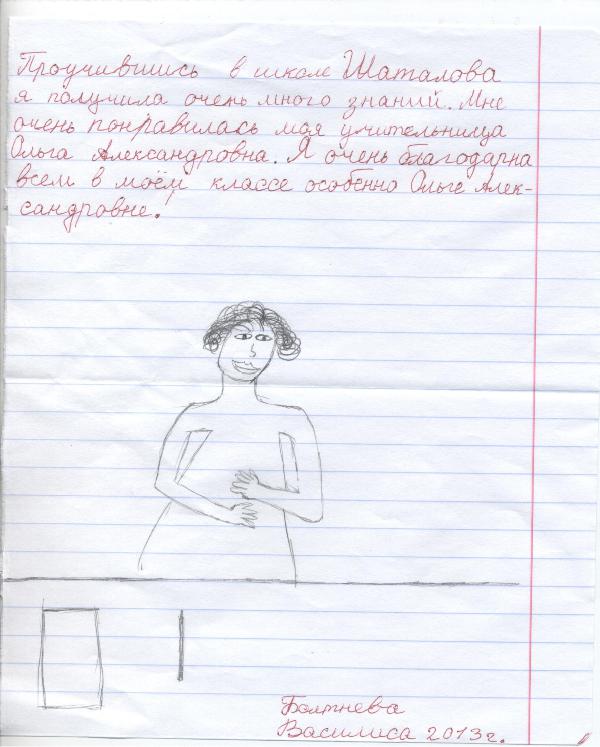 Проучившись в школе Шаталова
я получила очень много знаний. Мне
очень понравилась моя учительница
Ольга Александровна. Я очень благодарна
всем в моём классе особенно Ольге Алек-
сандровне!
Болтнева
Василиса 2013г.